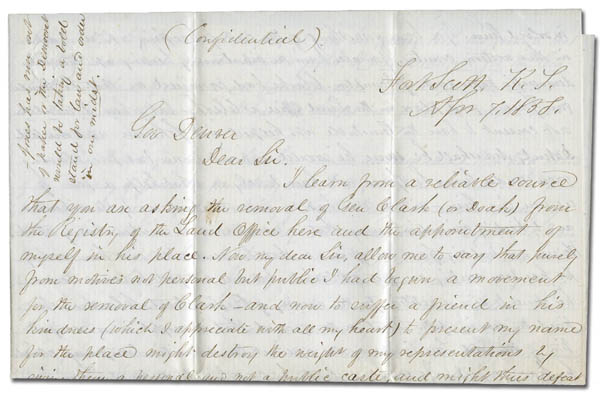 (Confidential)
Fort Scott, K. T.
Apr. 7, 1858.
Gov Denver
Dear Sir.
I learn from a reliable source
that you are asking the removal of Gen Clark (or Doak) from
the Registry of the Land Office here and the appointment of
myself in his place. Now my dear Sir, allow me to say that purely
from motives not personal but public I had begun a movement
for the removal of Clark - and now to suffer a friend in his
kindness (which I appreciate with all my heart) to present my name
for the place might destroy the weight of my representations by
giving them a personal and not a public caste, and might thus defeat
of parties is the Democrat
would be taking a bold
stand for law and order
in our midst.